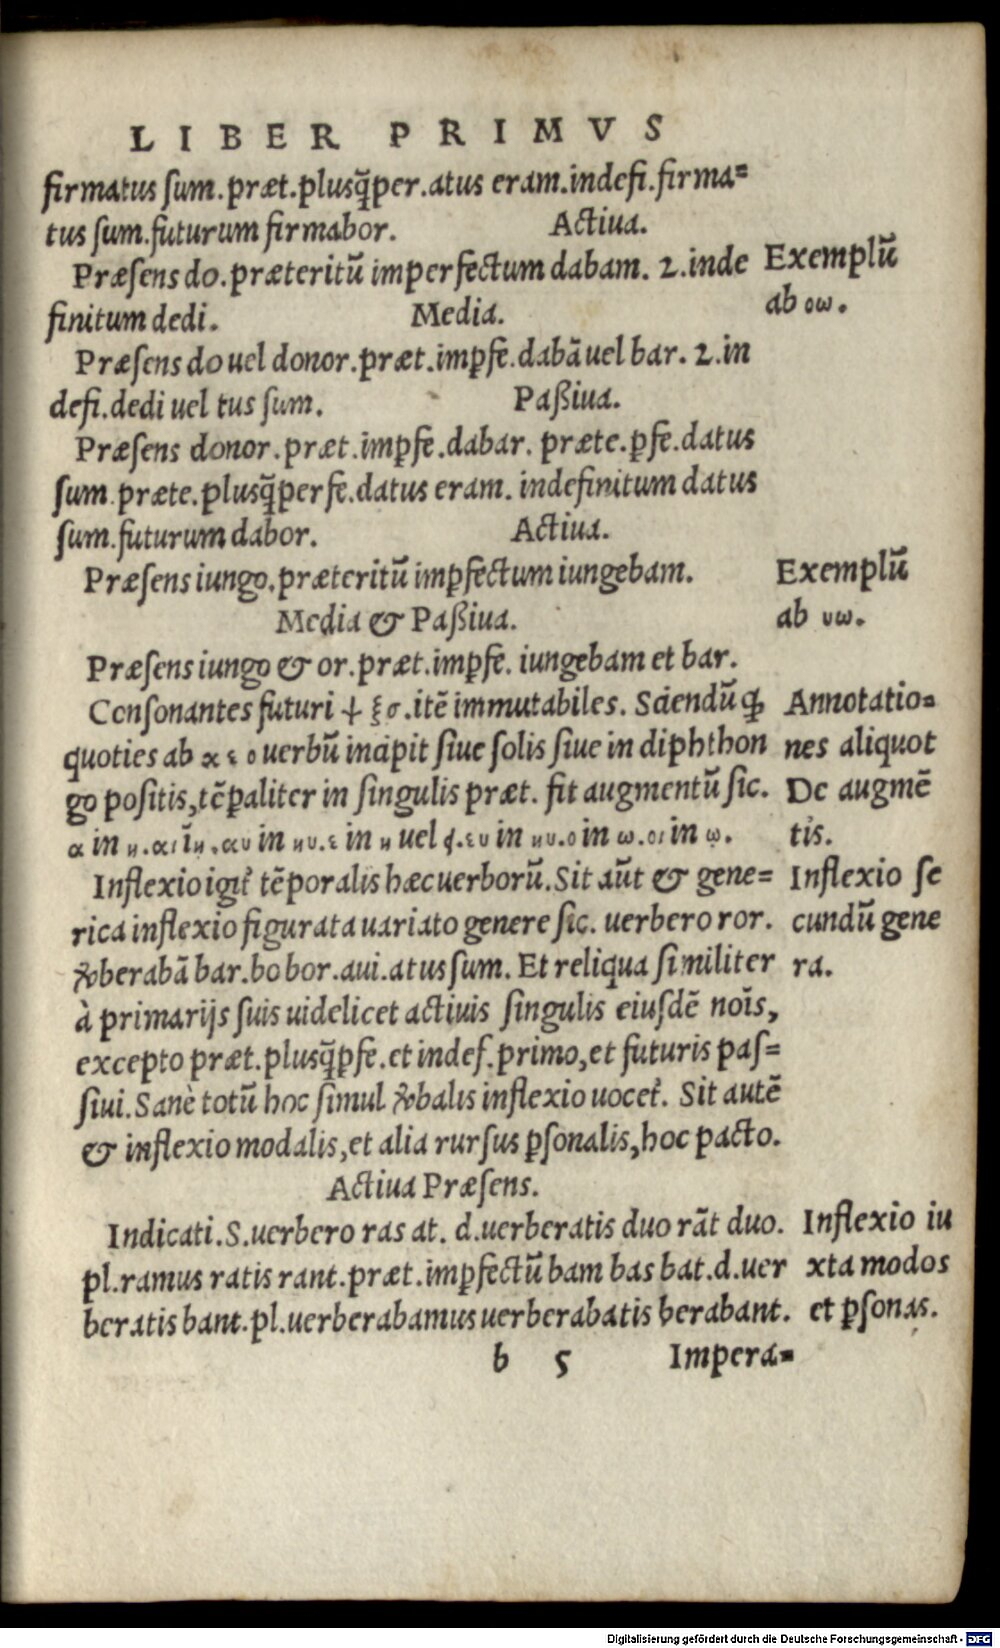 LIBER PRIMVS
firmatus ſum.præt.plusq̃per.atus eram.indefi.firma=
tus ſum.futurum firmabor. Actiua.
Præſens do.præteritũ imperfectum dabam. 2.inde
finitum dedi. Media.
Exemplũ
ab οω.
Præſens do uel donor.præt.imꝑfe.dabã uel bar. 2.in
defi.dedi uel tus ſum. Paßiua.
Præſens donor.præt.imꝑfe.dabar. præte.ꝑfe.datus
ſum.præte.plusq̃perfe.datus eram. indefinitum datus
ſum.futurum dabor. Actiua.
Præſens iungo.præteritũ imꝑfectum iungebam.
Media & Paßiua.
Exemplũ
ab υω.
Præſens iungo & or.præt.imꝑfe. iungebam et bar.
Conſonantes futuri ψ ξ σ.itẽ immutabiles. Sciendũ ꝙ
quoties ab α ε ο uerbũ incipit ſiue ſolis ſiue in diphthon
go poſitis,tẽꝑaliter in ſingulis præt. fit augmentũ ſic.
α in η.αι ĩ ῃ.αυ in ηυ.ε in η uel ει.ευ in ηυ.ο in ω.οι in ῳ.
Annotatio=
nes aliquot
De augmẽ
tis.
Inflexio igit᷒ tẽporalis hæc uerborũ.Sit aũt & gene=
rica inflexio figurata uariato genere ſic. uerbero ror.
ꝟberabã bar.bo bor.aui.atus ſum. Et reliqua ſimiliter
à primarijs ſuis uidelicet actiuis ſingulis eiuſdẽ noĩs,
excepto præt.plusq̃ꝑfe.et indef.primo,et futuris paſ=
ſiui.Sanè totũ hoc ſimul ꝟbalis inflexio uocet᷒. Sit autẽ
& inflexio modalis,et alia rurſus ꝑſonalis,hoc pacto.
Inflexio ſe
cundũ gene
ra.
Actiua Præſens.
Indicati.S.uerbero ras at. d.uerberatis duo rãt duo.
pl.ramus ratis rant.præt.imꝑfectũ bam bas bat.d.uer
beratis bant.pl.uerberabamus uerberabatis berabant.
Inflexio iu
xta modos
et ꝑſonas.
b 5 Impera=
Digitalisierung gefördert durch die Deutsche Forschungsgemeinschaft - DFG